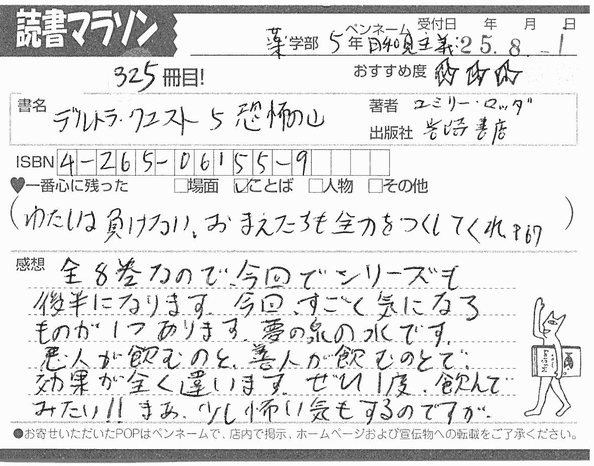 読書マラソン
ペンネーム 受付日 年 月 日
薬学部 5年 日和見主義 25.8.-1
325冊目!
おすすめ度 ☆☆☆
書名 デルトラ・クエスト 5 恐怖の山
著者 エミリー・ロッダ
出版社 岩崎書店
ISBN 4-265-06155-9
♥一番心に残った □場面 ☑ことば □人物 □その他
(わたしは負けない。おまえたちも全力をつくしてくれ。P67)
感想 全8巻なので、今回でシリーズも
後半になります。今回、すごく気になる
ものが1つあります。夢の泉の水です。
悪人が飲むのと、善人が飲むのとで、
効果が全く違います。ぜひ1度、飲んで
みたい!! まあ、少し怖い気もするのですが。
●お寄せいただいたPOPはペンネームで、店内で掲示、ホームページおよび宣伝物への転載をご了承ください。